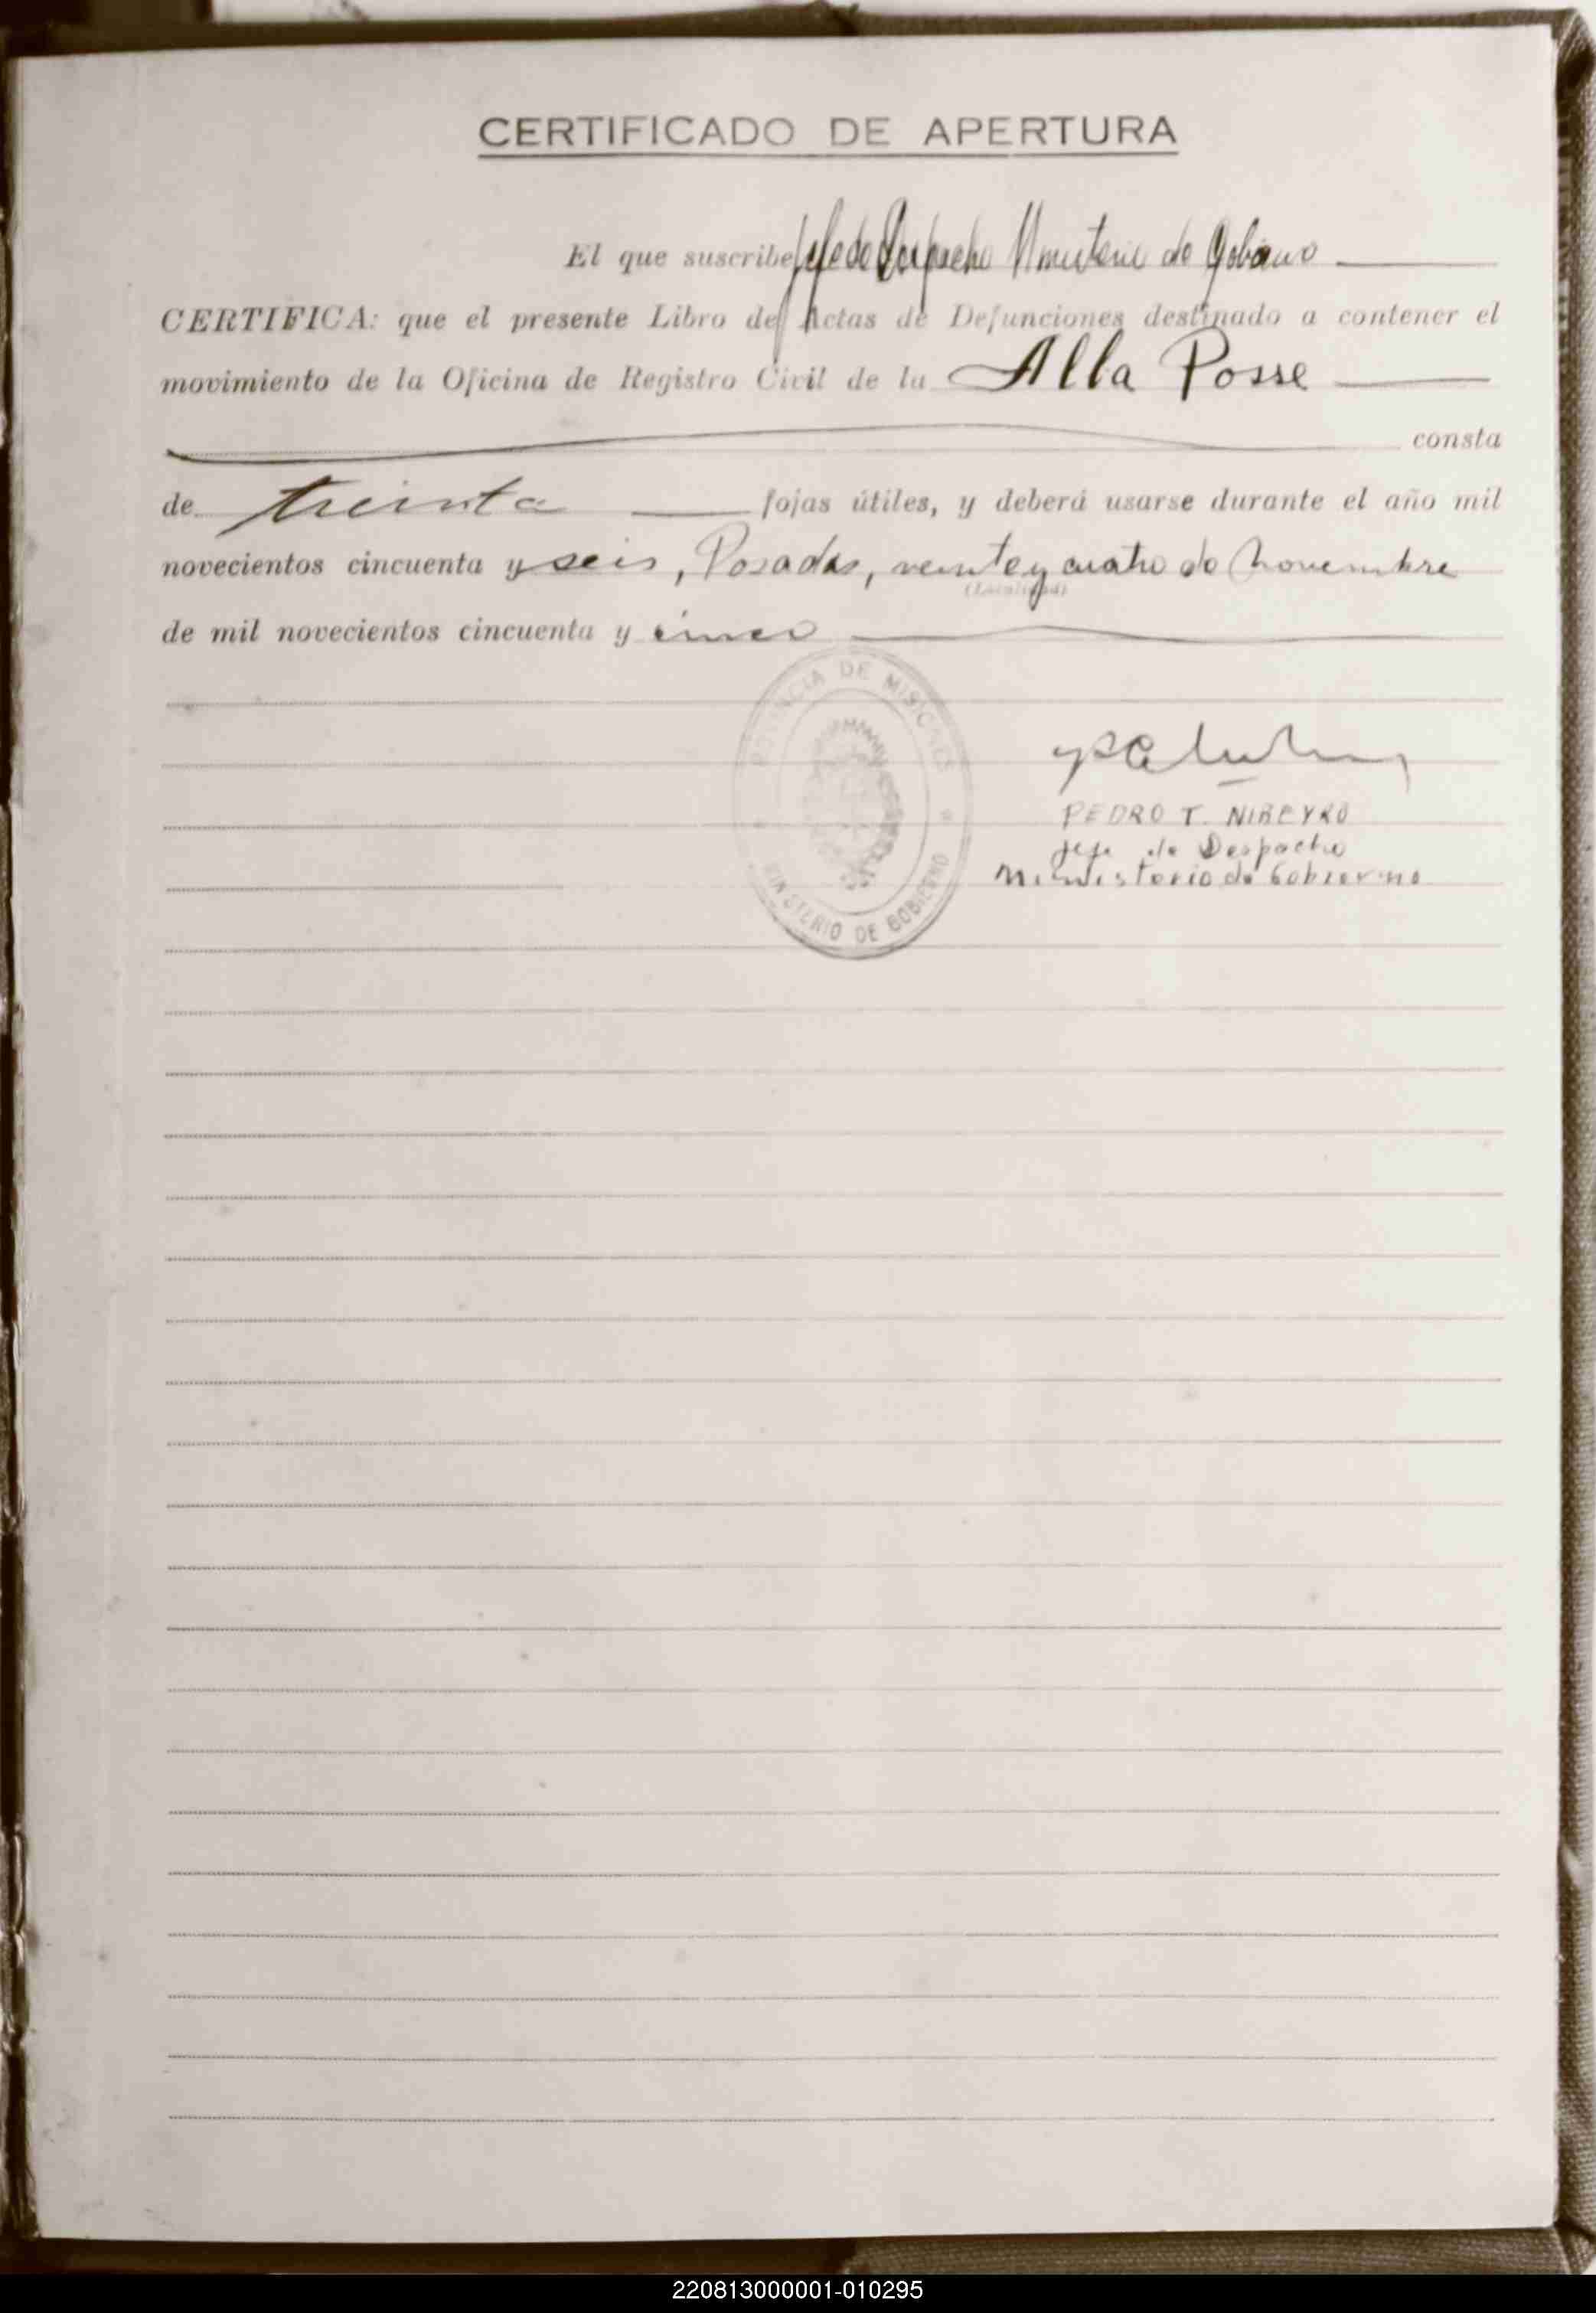 CERTIFICADO DE APERTURA
El que suscribe Jefe de Despacho Ministerio de Gobierno
CERTIFICA: que el presente Libro de Actas de Defunciones destinado a contener el
movimiento de la Oficina de Registro Civil de la Alba Posse
consta
de treinta fojas útiles, y deberá usarse durante el año mil
novecientos cincuenta y seis, Posadas, veinte y cuatro de noviembre
(Localidad)
de mil novecientos cincuenta y cinco
PROVINCIA DE MISIONES
MINISTERIO DE GOBIERNO
PEDRO T.
Jefe de Despacho
Ministerio de Gobierno
220813000001-010295